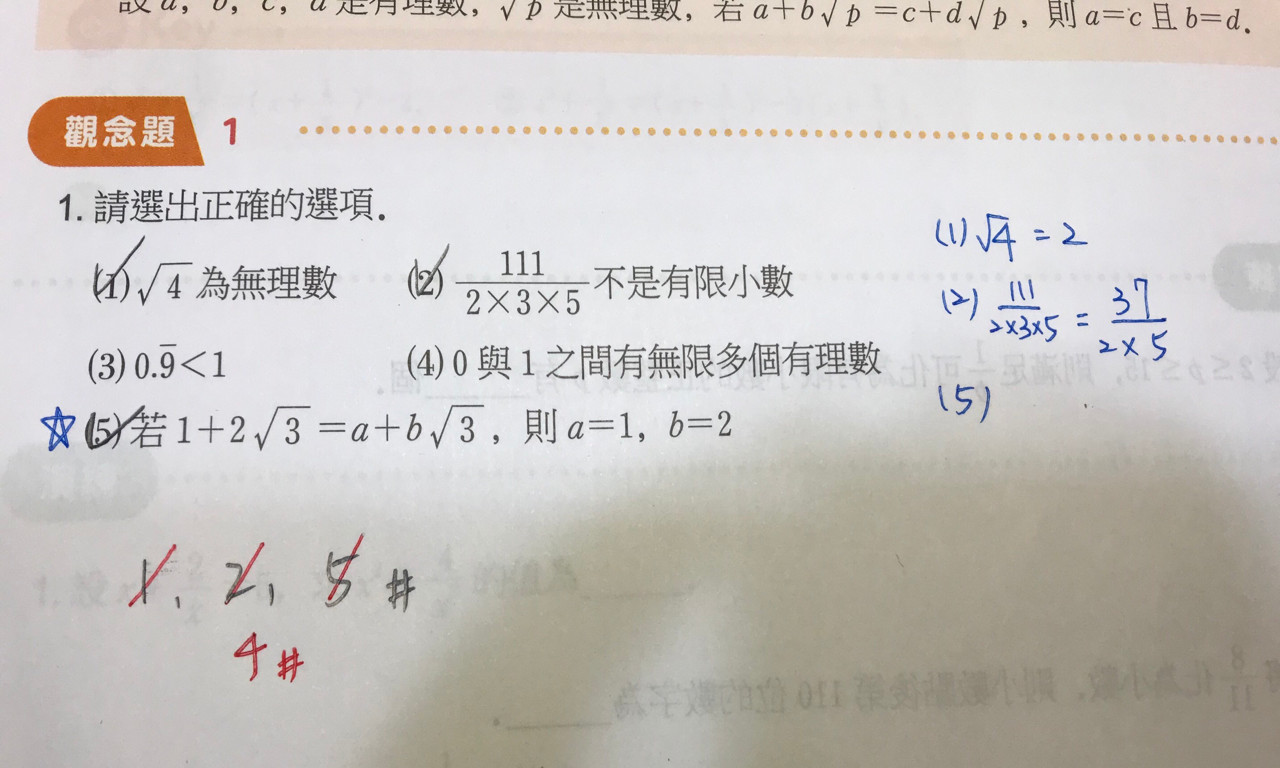 設 a, b, c, d 是有理數, √p 是無理數, 若 a+b√p =c+d√p , 則 a=c 且 b=d.
觀念題 1
1. 請選出正確的選項.
(1) √4 為無理數 (2) 111/(2×3×5) 不是有限小數
(3) 0.9̅<1 (4) 0 與 1 之間有無限多個有理數
☆ (5) 若 1+2√3 =a+b√3 , 則 a=1, b=2
(1) √4 = 2
(2) 111/(2×3×5) = 37/(2×5)
(5)
1, 2, 5 #
4 #